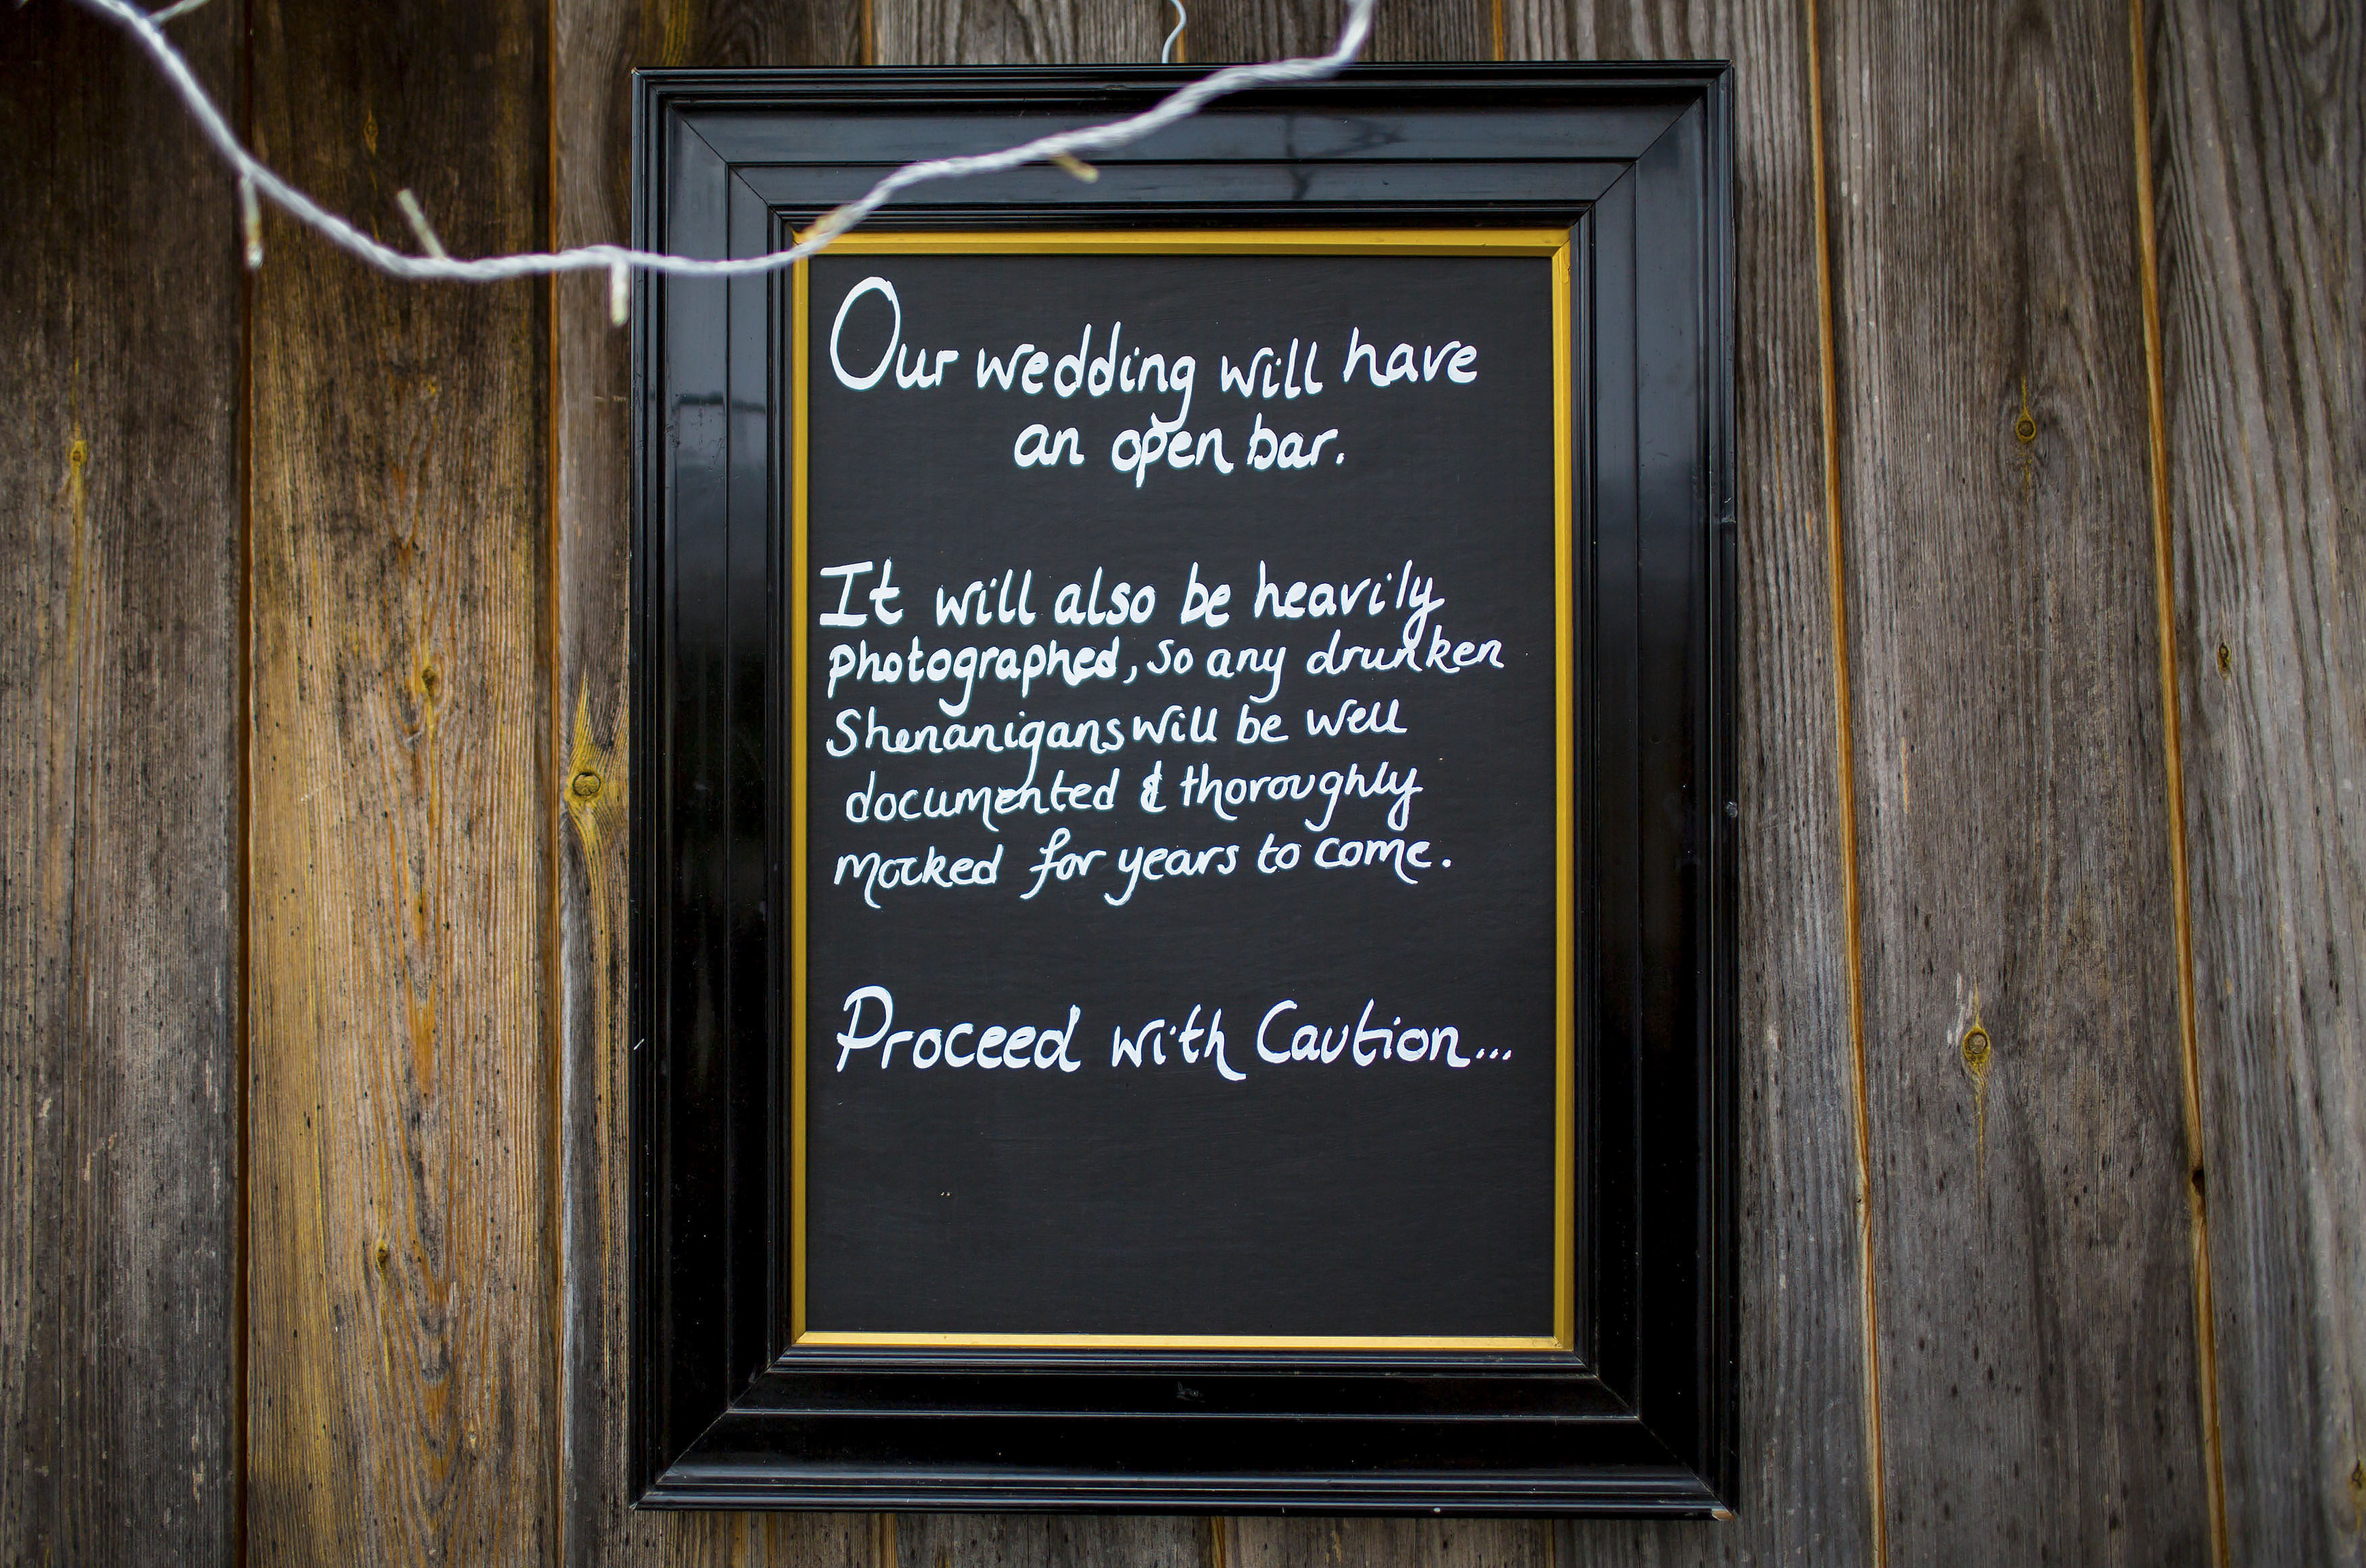 Our wedding will have
an open bar.
It will also be heavily
photographed, so any drunken
Shenanigans will be well
documented & thoroughly
mocked for years to come.
Proceed with Caution...